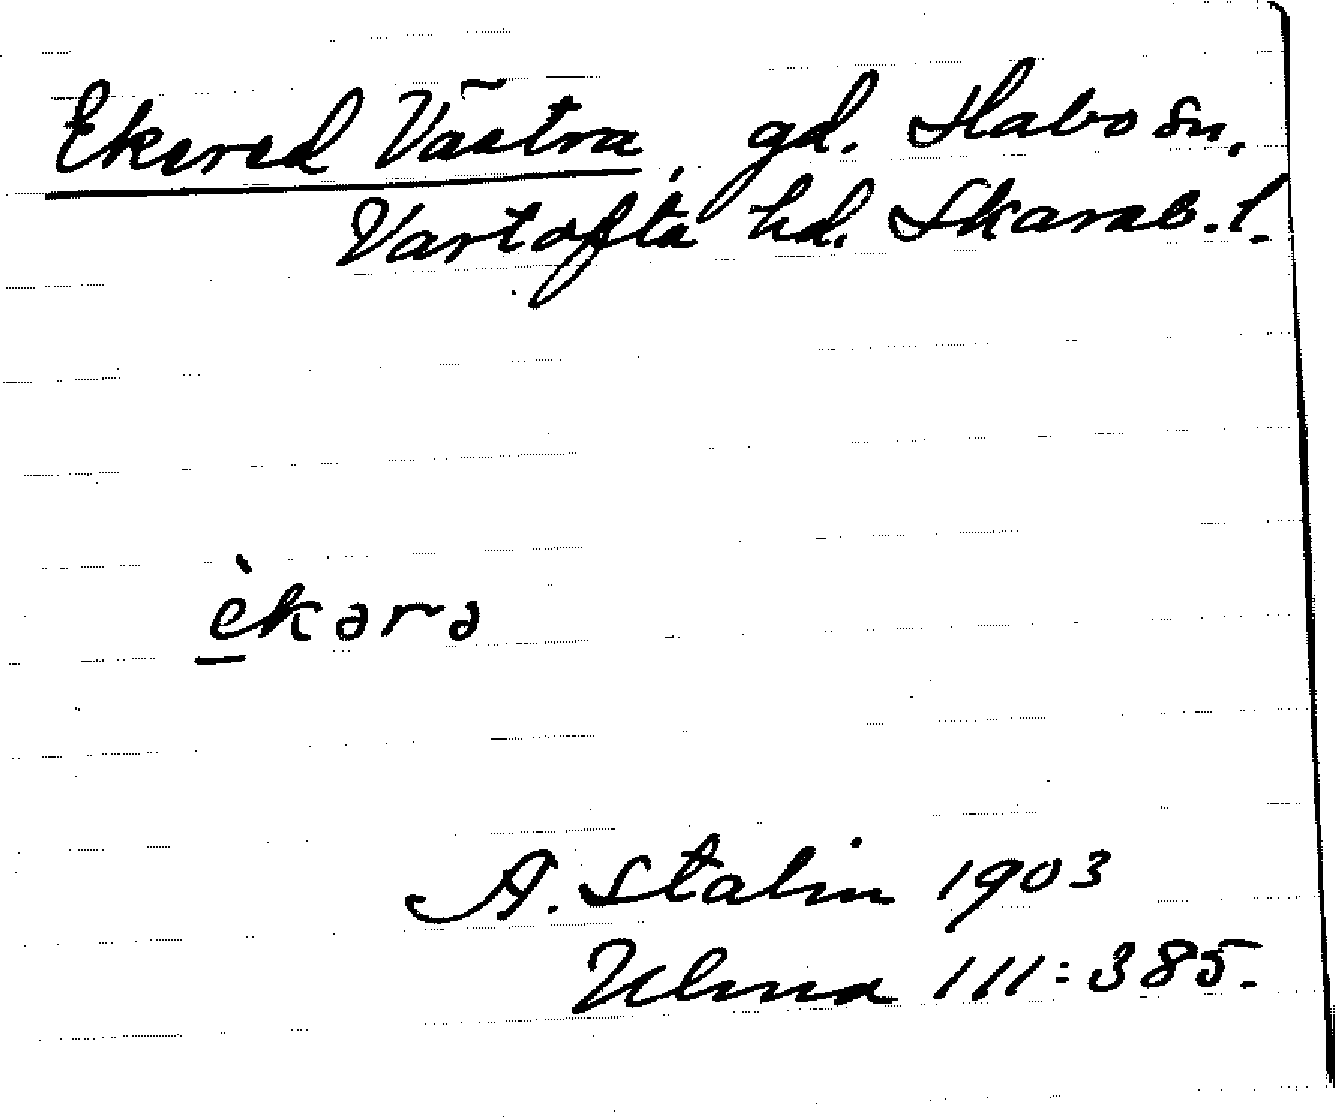 Ekered Västra, gd. Habo sn,
Vartofta hd. Skarab. l.
èkərə
A. Stalin 1903
Ulma 111:385.